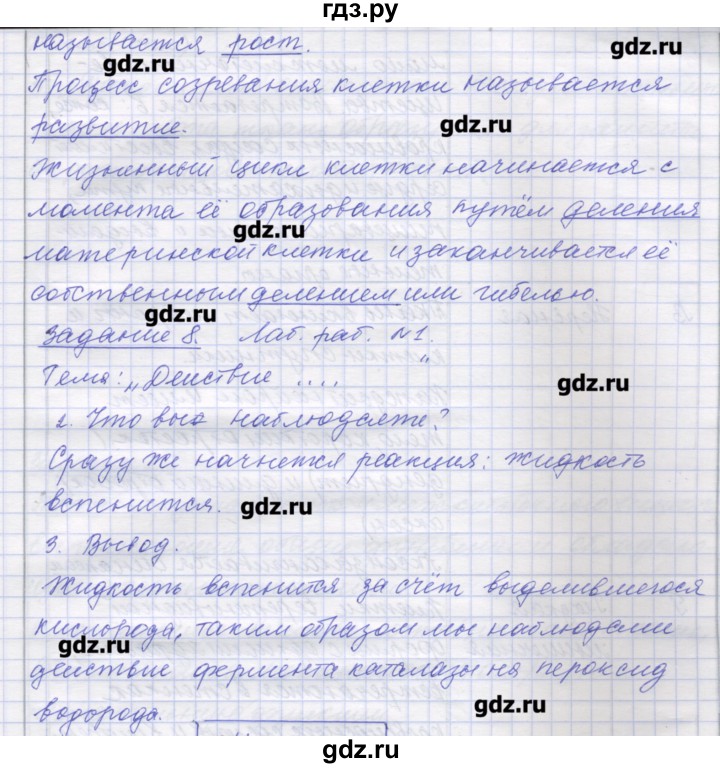 гдз.ру
называется рост.
gdz.ru gdz.ru
Процесс созревания клетки называется
развитие.
gdz.ru
Жизненный цикл клетки начинается с
момента её образования путём деления
gdz.ru
материнской клетки и заканчивается её
собственным делением или гибелью.
gdz.ru
Задание 8. Лаб. раб. №1.
Тема: „Действие ....“
gdz.ru
2. Что вы наблюдаете?
Сразу же начнется реакция: жидкость
вспенится.
gdz.ru
3. Вывод.
Жидкость вспенится за счёт выделившегося
кислорода, таким образом мы наблюдаем
gdz.ru
действие фермента каталазы на пероксид
водорода.
gdz.ru
gdz.ru